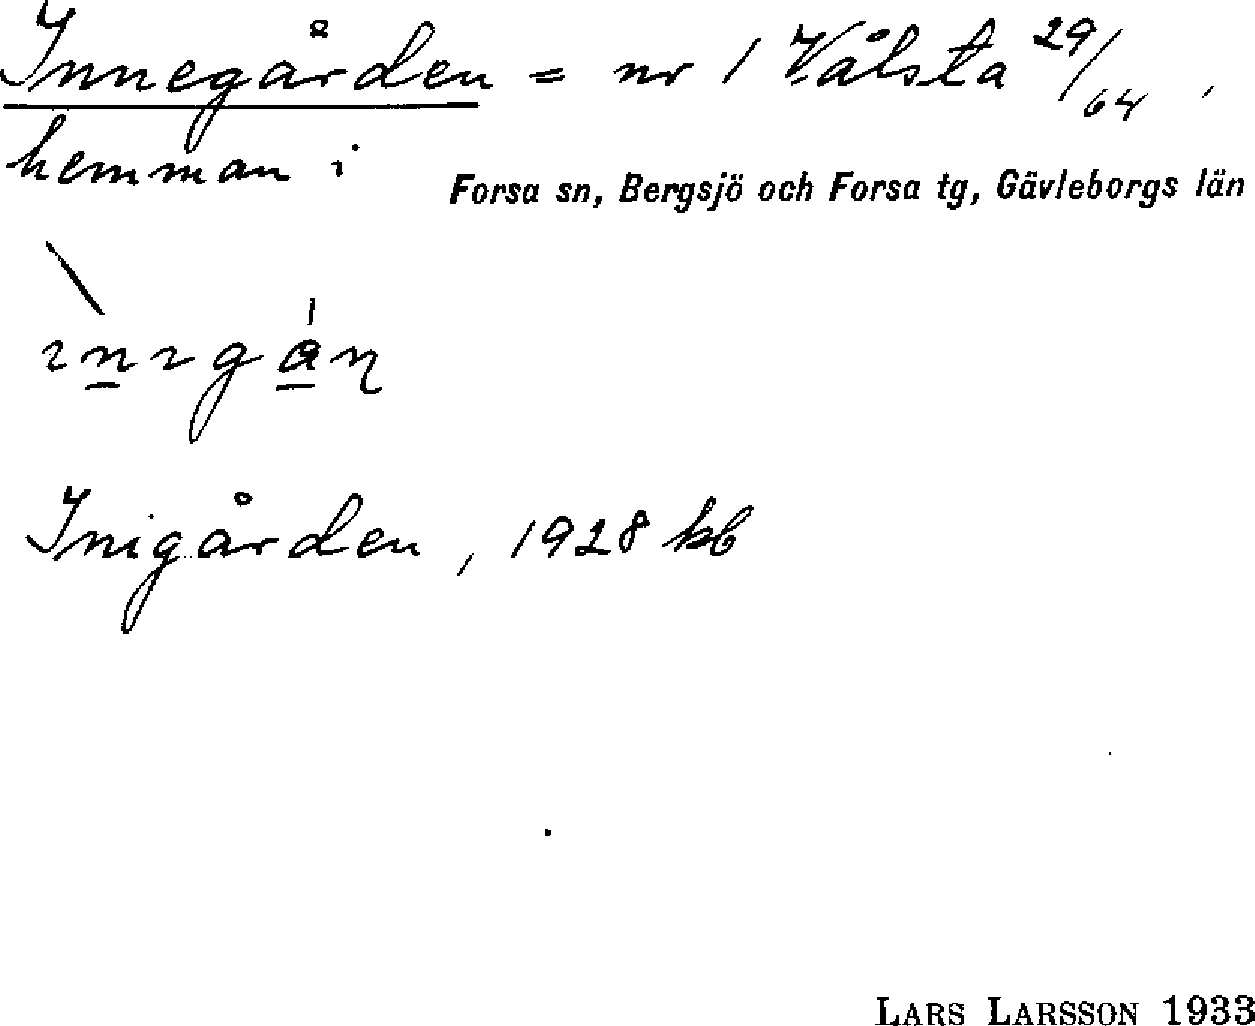 Innegården = nr 1 Vålsta 29/64,
hemman i
Forsa sn, Bergsjö och Forsa tg, Gävleborgs län
Inigården, 1928 kb
LARS LARSSON 1933